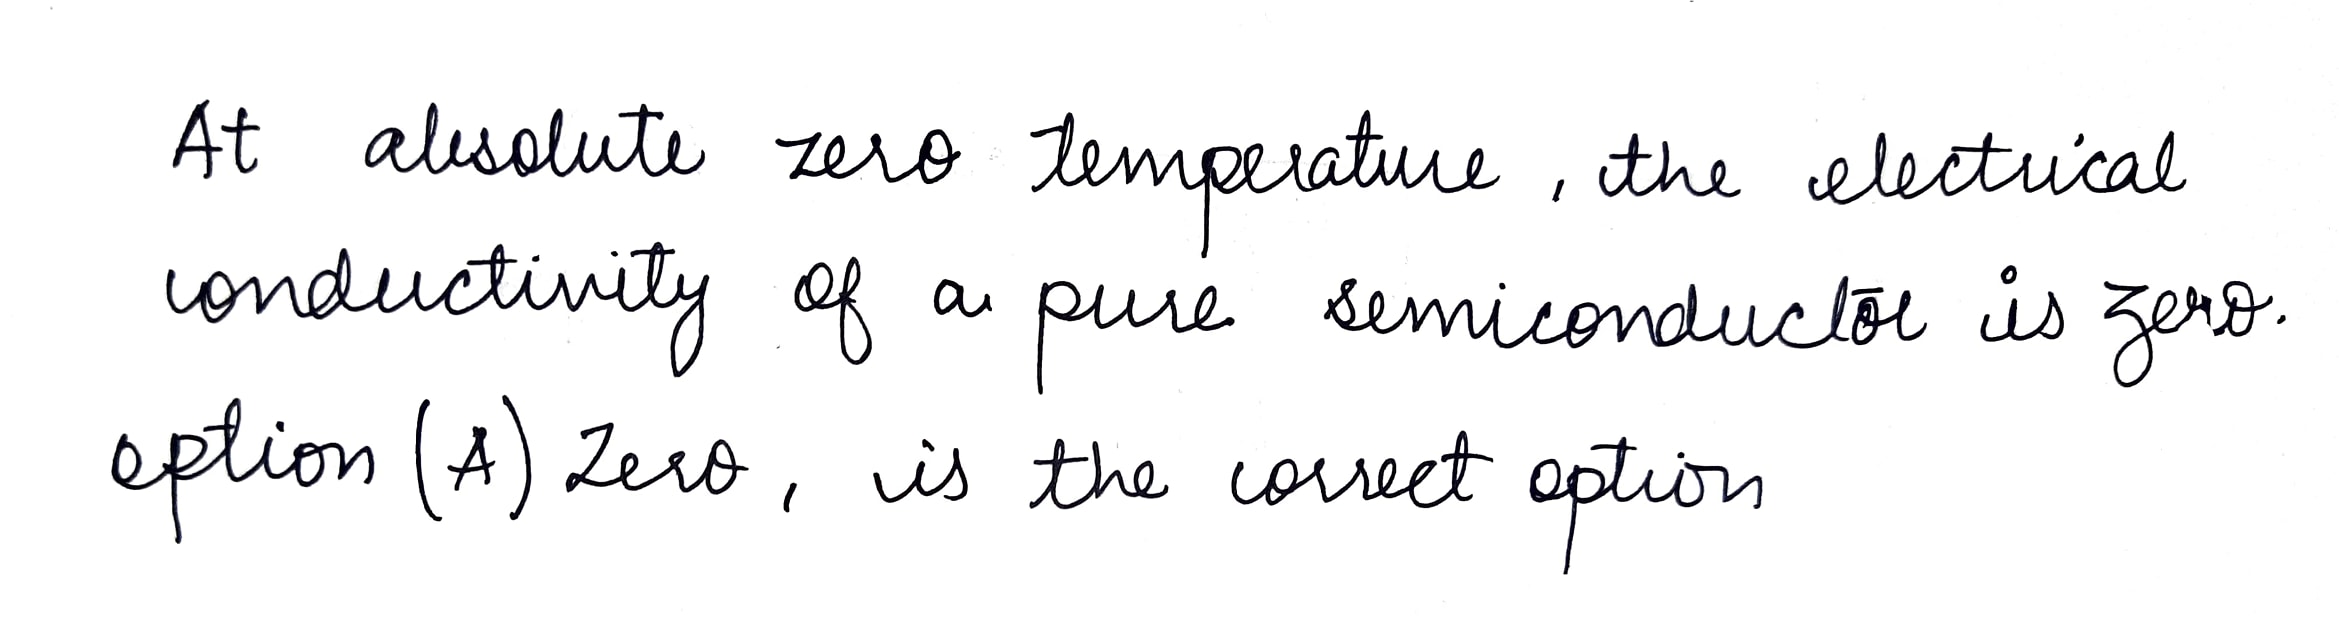 At absolute zero temperature, the electrical
conductivity of a pure semiconductor is zero.
option (A) Zero, is the correct option